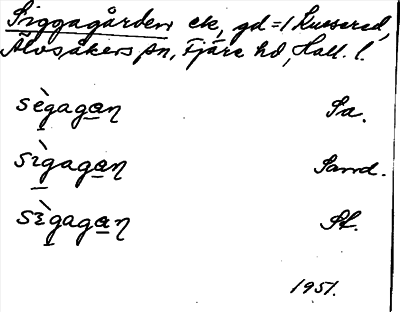 Siggagården ek, gd =1 Kuserud,
Älvsåkers sn, Fjäre hd, Hall. l.
sègagaŋ Sa.
sìgagaŋ Sand.
sɛ̀gagaŋ St.
1951.